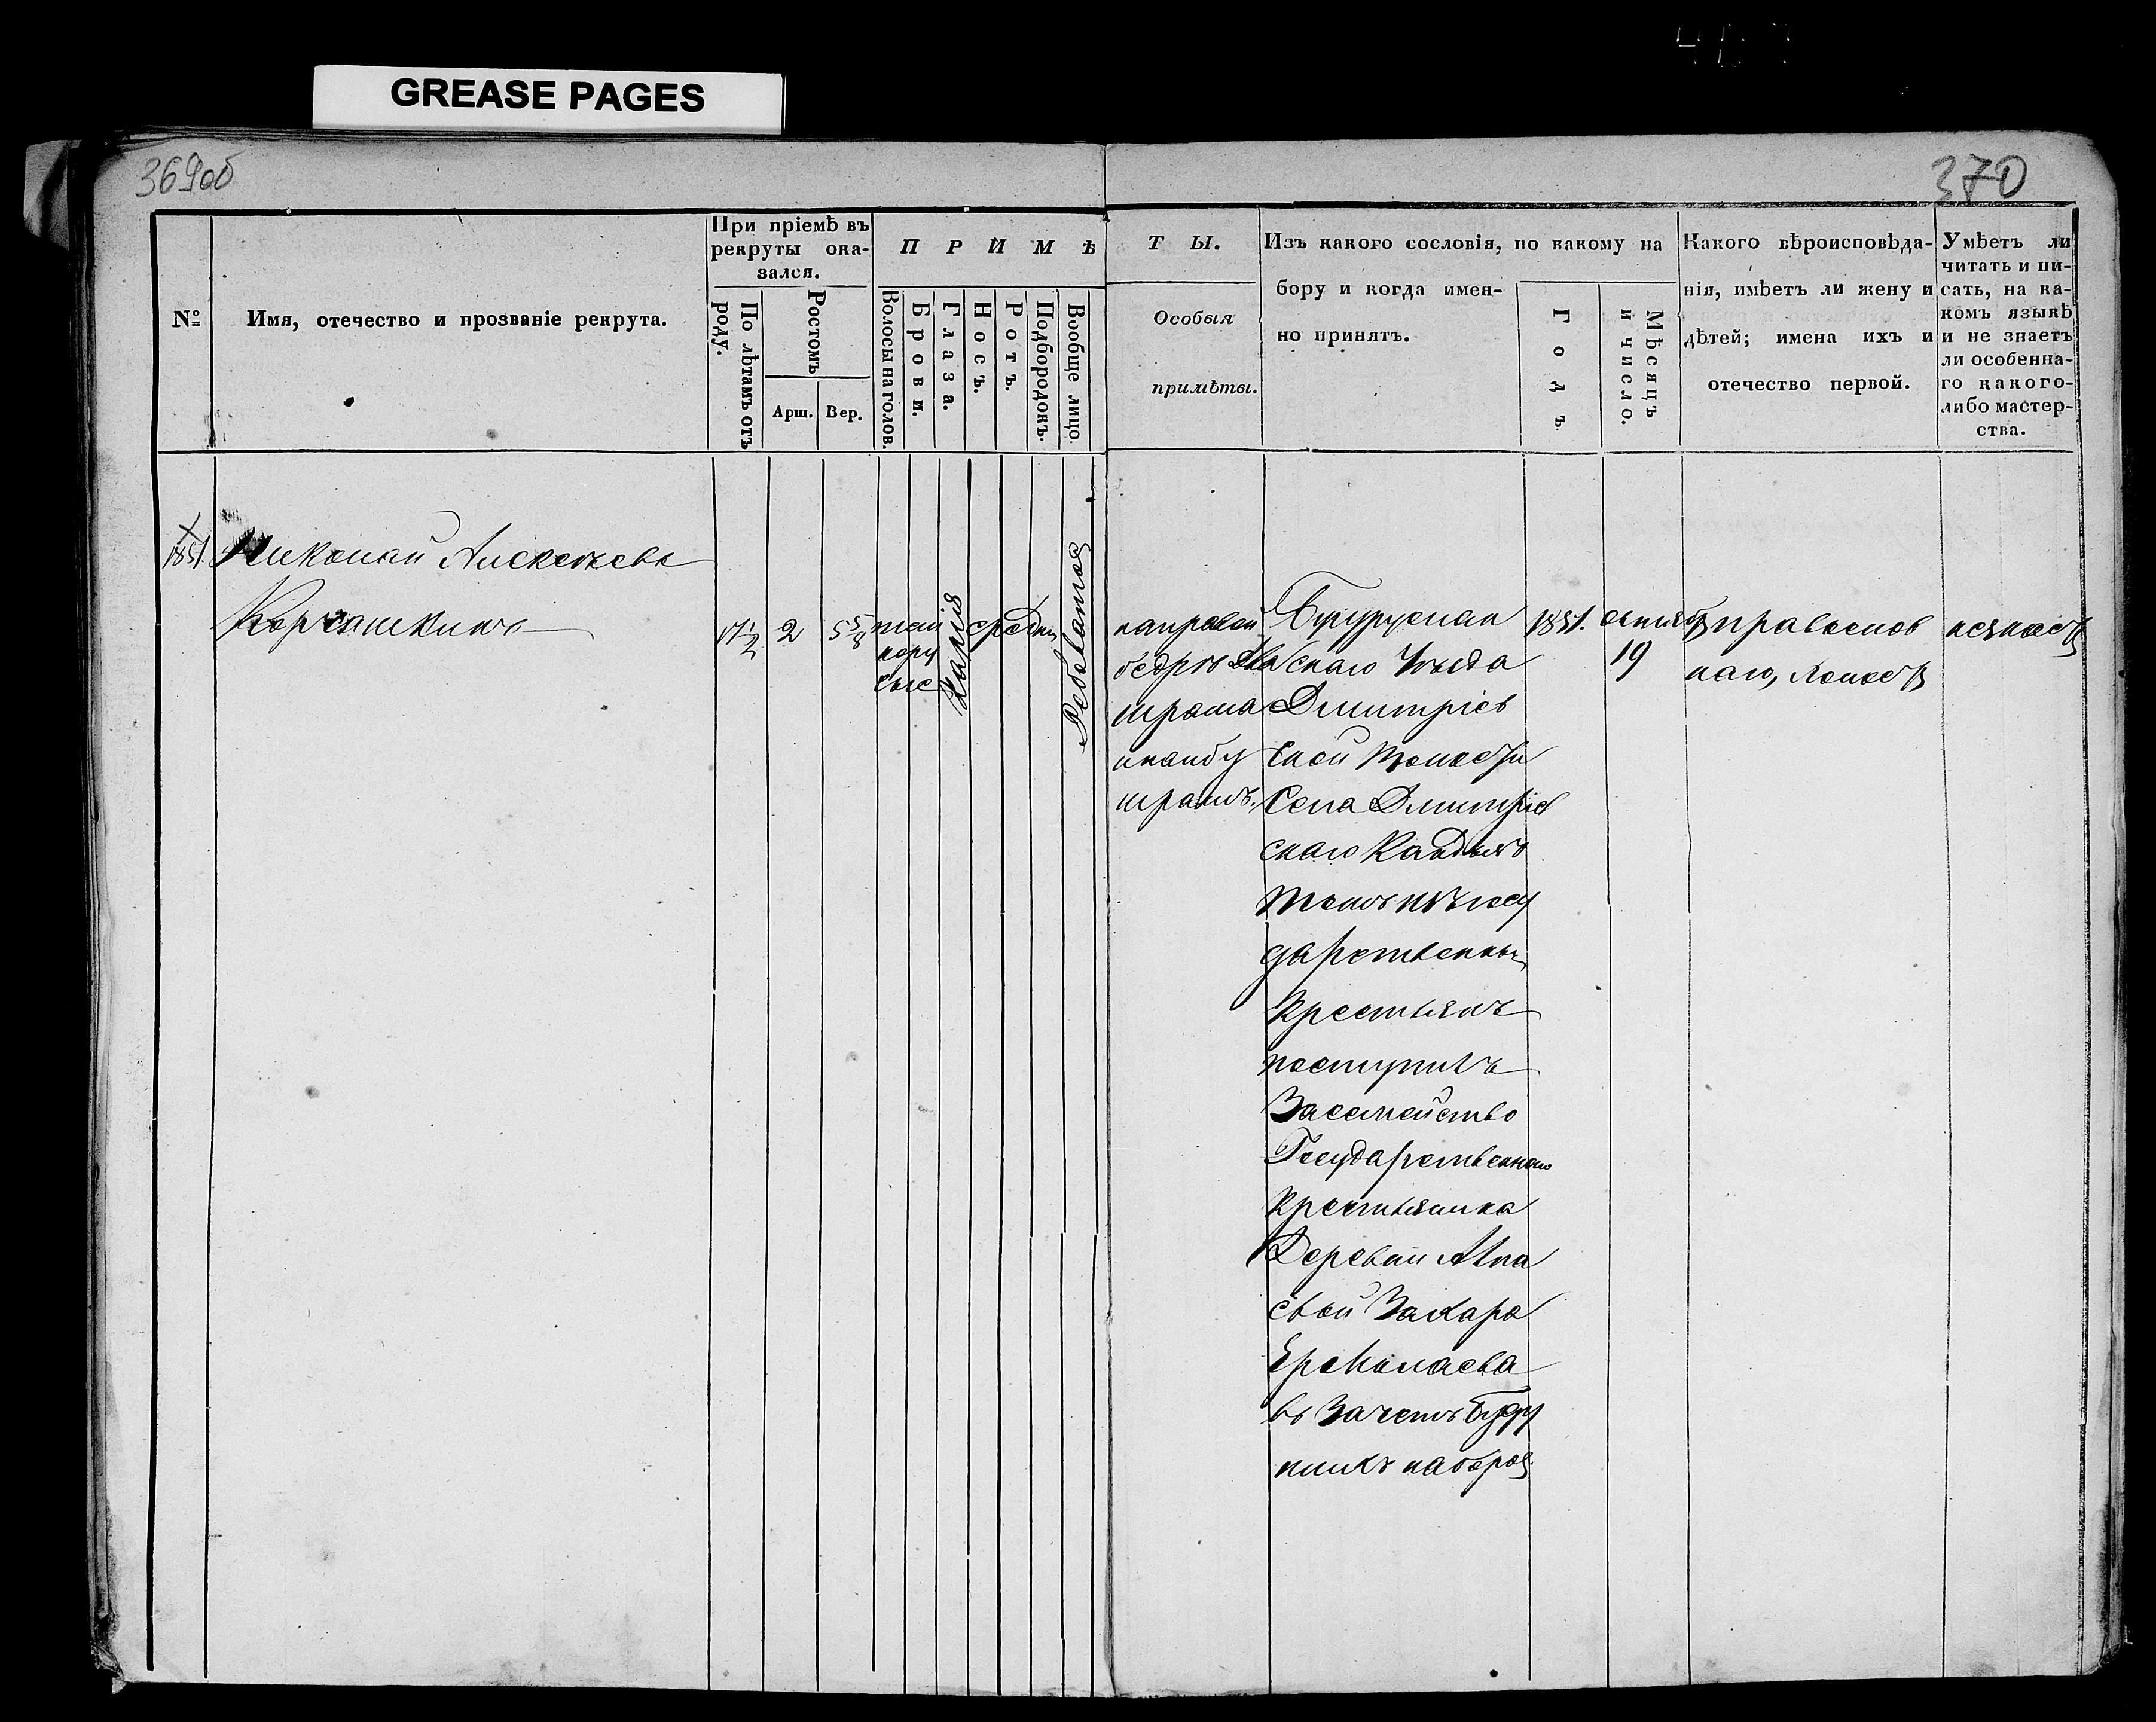 GREASE PAGES
369об
370
№
Имя, отечество и прозваніе рекрута.
При пріемѣ въ
рекруты ока-
зался.
По лѣтамъ отъ
роду.
Ростомъ
Арш.
Вер.
ПРИМѢ
Волосы на голов.
Брови.
Глаза.
Носъ.
Ротъ.
Подбородокъ.
Вообще лицо.
ТЫ.
Особыя
примѣты.
Изъ какого сословія, по какому на
бору и когда имен-
но принятъ.
Годъ.
Мѣсяцъ
и число.
Какого вѣроисповѣда-
нія, имѣетъ ли жену и
дѣтей; имена ихъ и
отечество первой.
Умѣетъ ли
читать и пи-
сать, на ка-
комъ языкѣ
и не знаетъ
ли особенна-
го какого-
либо мастер-
ства.
Николай Алексѣевъ
2
5 5/8
Карія
средни
Рябоватое
на правой
бедрѣ два
шрама
на лбу
шрамъ.
Бугуруслан
скаго Уѣзда
Дмитріев
ской
Села Дмитріев
скаго
государственны
крестьянъ
поступилъ
За семейство
Государственнаго
крестьянина
Деревни
Захара
Ермолаева
въ Зачетъ буду
набора
1851.
октября
19
православ
наго, холостъ